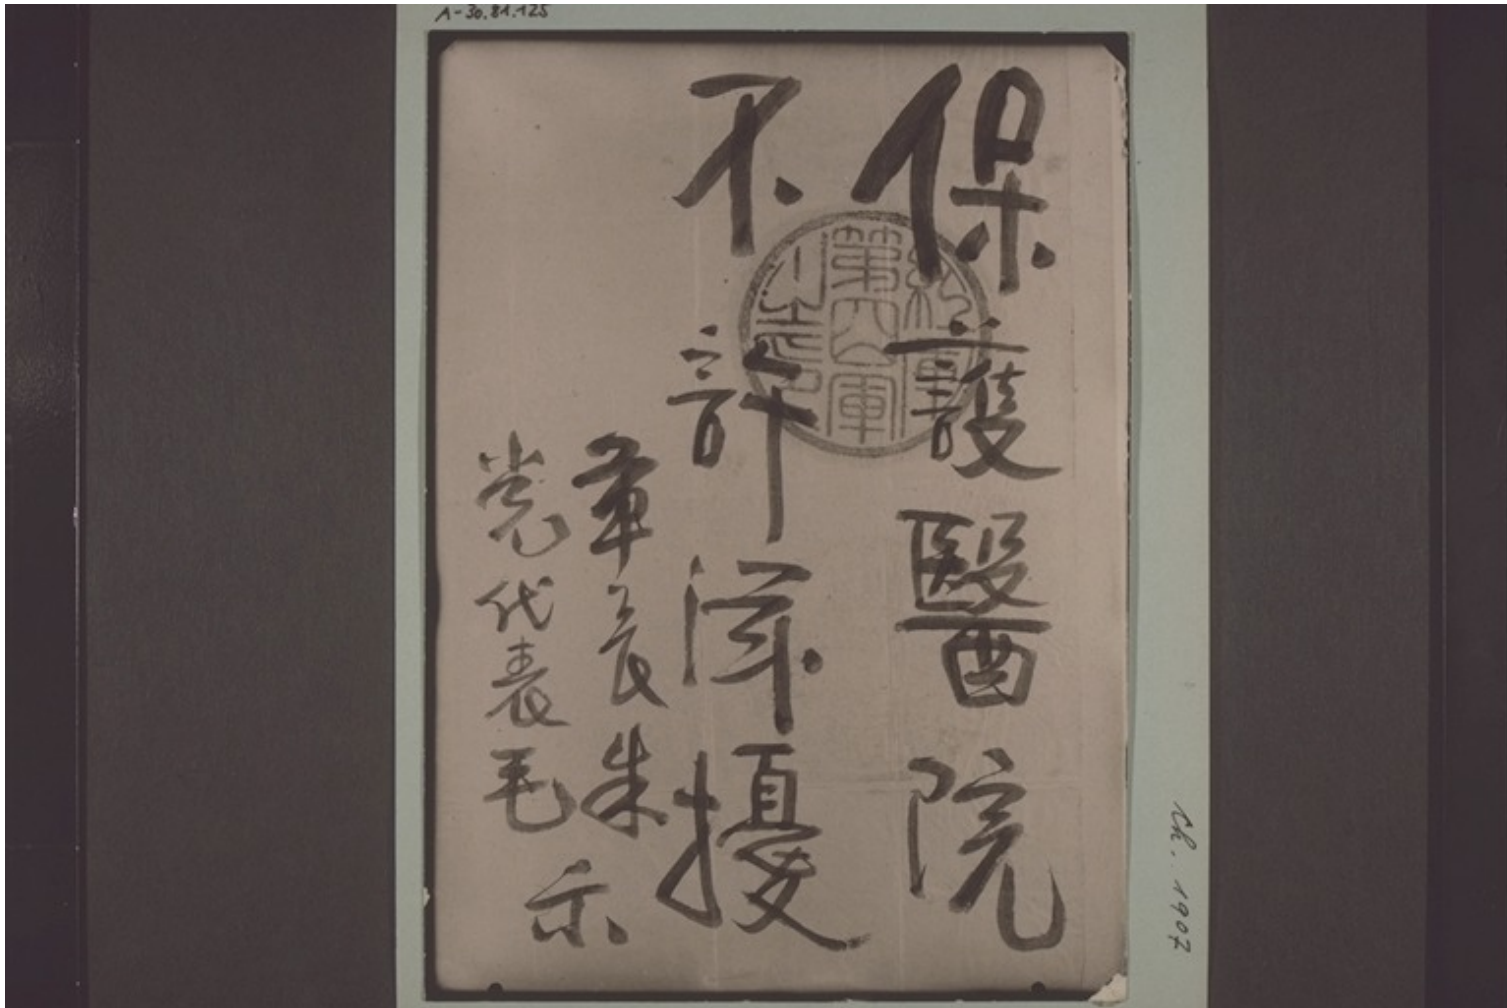 A-30.81.125
保護醫院
不許擾
軍長朱
党代表毛
示
紅軍
第四軍
Ch. 1907